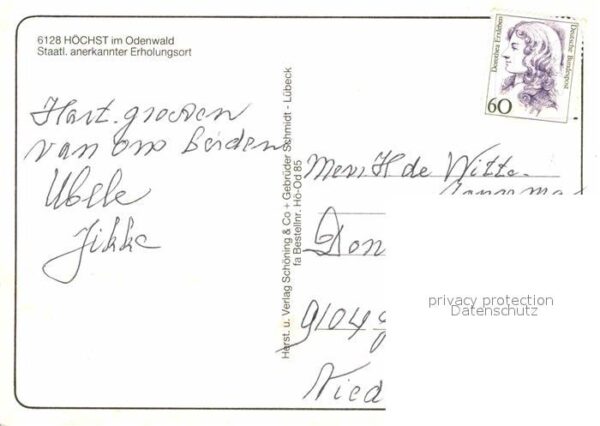 6128 HÖCHST im Odenwald
Staatl. anerkannter Erholungsort
Dorothea Erxleben
Deutsche Bundespost
60
Hart. groeten
van ons beiden
Jikke
Herst. u. Verlag Schöning & Co + Gebrüder Schmidt - Lübeck
fa Bestellnr. Hö-Od 85
Mevr. H de Witte
Don
9104
Nied
privacy protection
Datenschutz